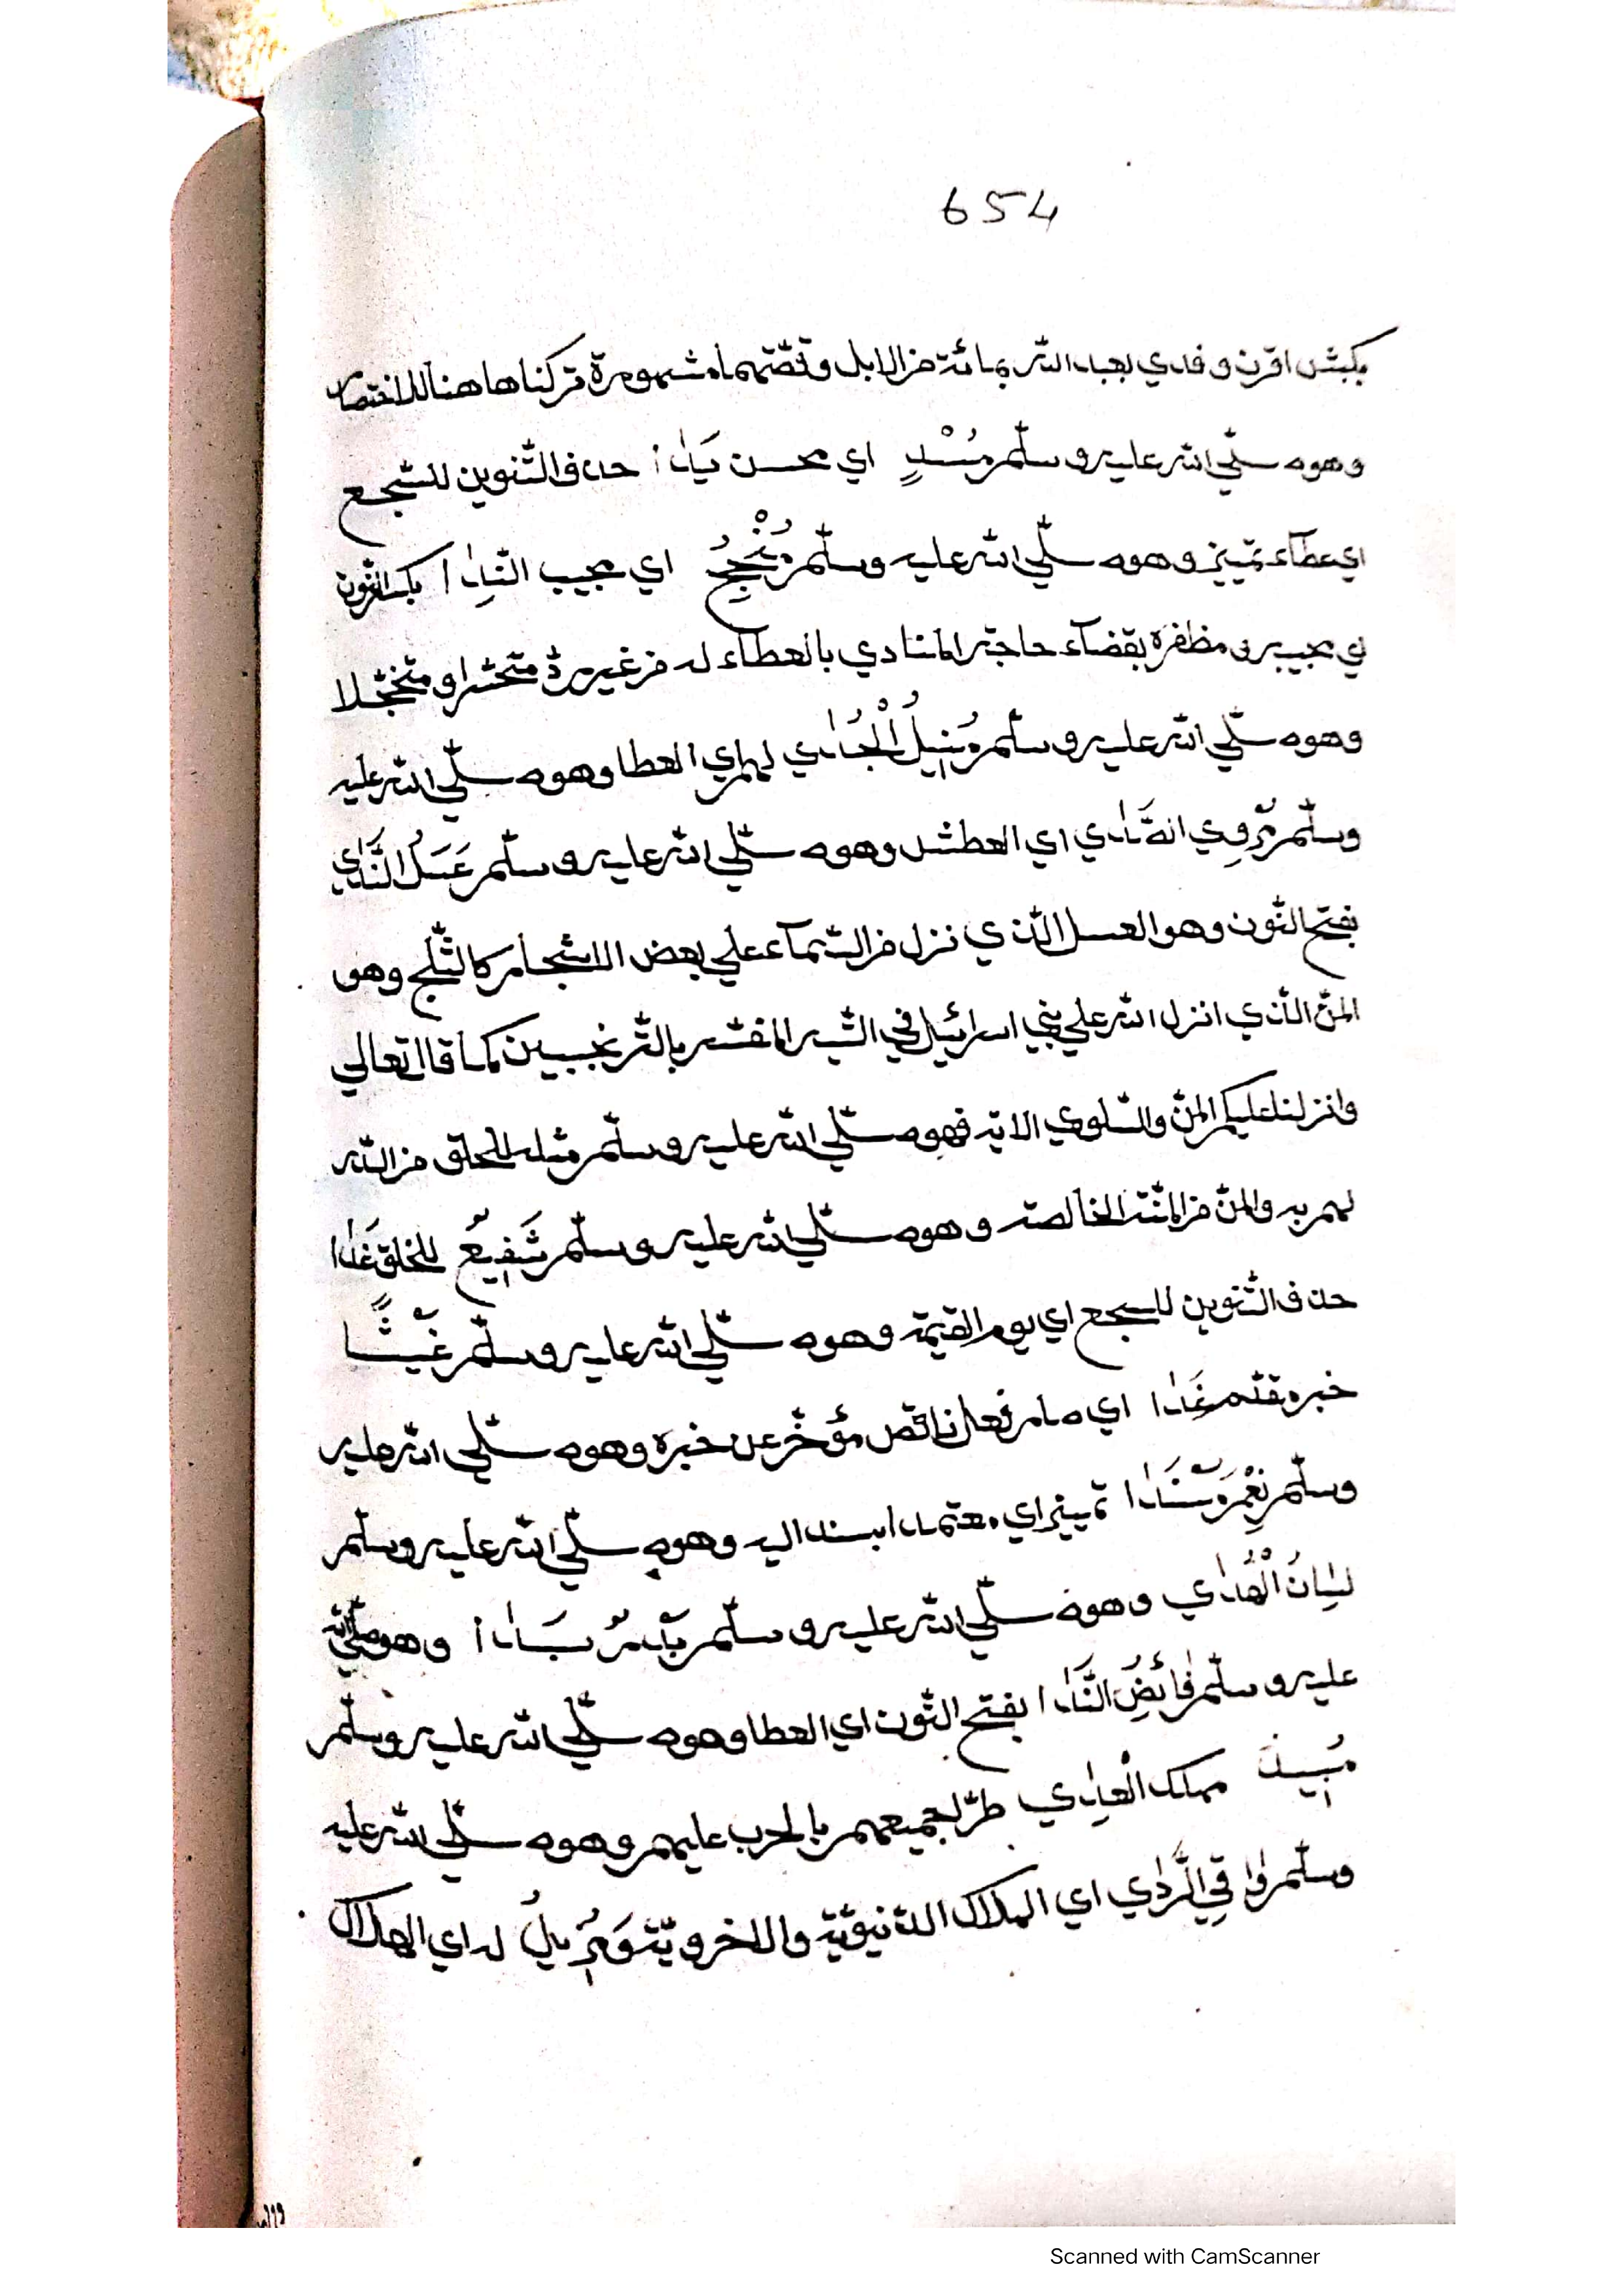 654
بكبش اقرن وفدي بعبد الله بمائة من الابل وقصّتهما مشهورة تركناها هنا للاختصار
وهو صلّي الله عليه وسلّم مُسْدٍ اي محسن يَدٰا حذف التّنوين للسّجع
اي عطآء تمييز وهو صلّي الله عليه وسلّم مُنْجِحُ اي مجيب النِّدٰا بكسر النّون
اي مجيبه مظفره بقضآء حاجة المنادي بالعطآء له من غير ردّ متحسّرا ومتخجّلا
وهو صلّي الله عليه وسلّم مُنِيلُ الْجُدٰي لهم اي العطا وهو صلّي الله عليه
وسلّم مُرْوِي الصَّدٰي اي العطش وهو صلّي الله عليه وسلّم عَسَلُ النَّدٰي
بفتح النّون وهو العسل الّذي نزل من السّمآء علي بعض الاشجار كالثّلج وهو
المنّ الّذي انزل الله علي بني اسرائيل في التّيه المفسّر بالتّرنجبين كما قال تعالي
وانزلنا عليكم المنّ والسّلوي الاية فهو صلّي الله عليه وسلّم مثله للخلق من الله
لهم به والمنّ من المنّة الخالصة وهو صلّي الله عليه وسلّم شَفِيعُ للخلق غَدٰا
حذف التّنوين للسجع اي يوم القيمة وهو صلّي الله عليه وسلّم غَيْثًا
خبره مقدّم غَدٰا اي صار فعل ناقص مؤخّر عن خبره وهو صلّي الله عليه
وسلّم نِعْمَ سَنَدٰا تمييز اي معتمدا يسند اليه وهو صلّي الله عليه وسلّم
لِسٰانُ الْهُدٰي وهو صلّي الله عليه وسلّم بَدْرٌ بَدٰا وهو صلّي الله
عليه وسلّم فٰائِضُ النَّدٰا بفتح النّون اي العطا وهو صلّي الله عليه وسلّم
مُبِيدُ مهلك الْعِدٰي طرّا جميعهم بالحرب عليهم وهو صلّي الله عليه
وسلّم وٰاقِي الرَّدٰي اي الهلاك الدّنيويّة والاخرويّة وَمُزِيلُ له اي الهلاك